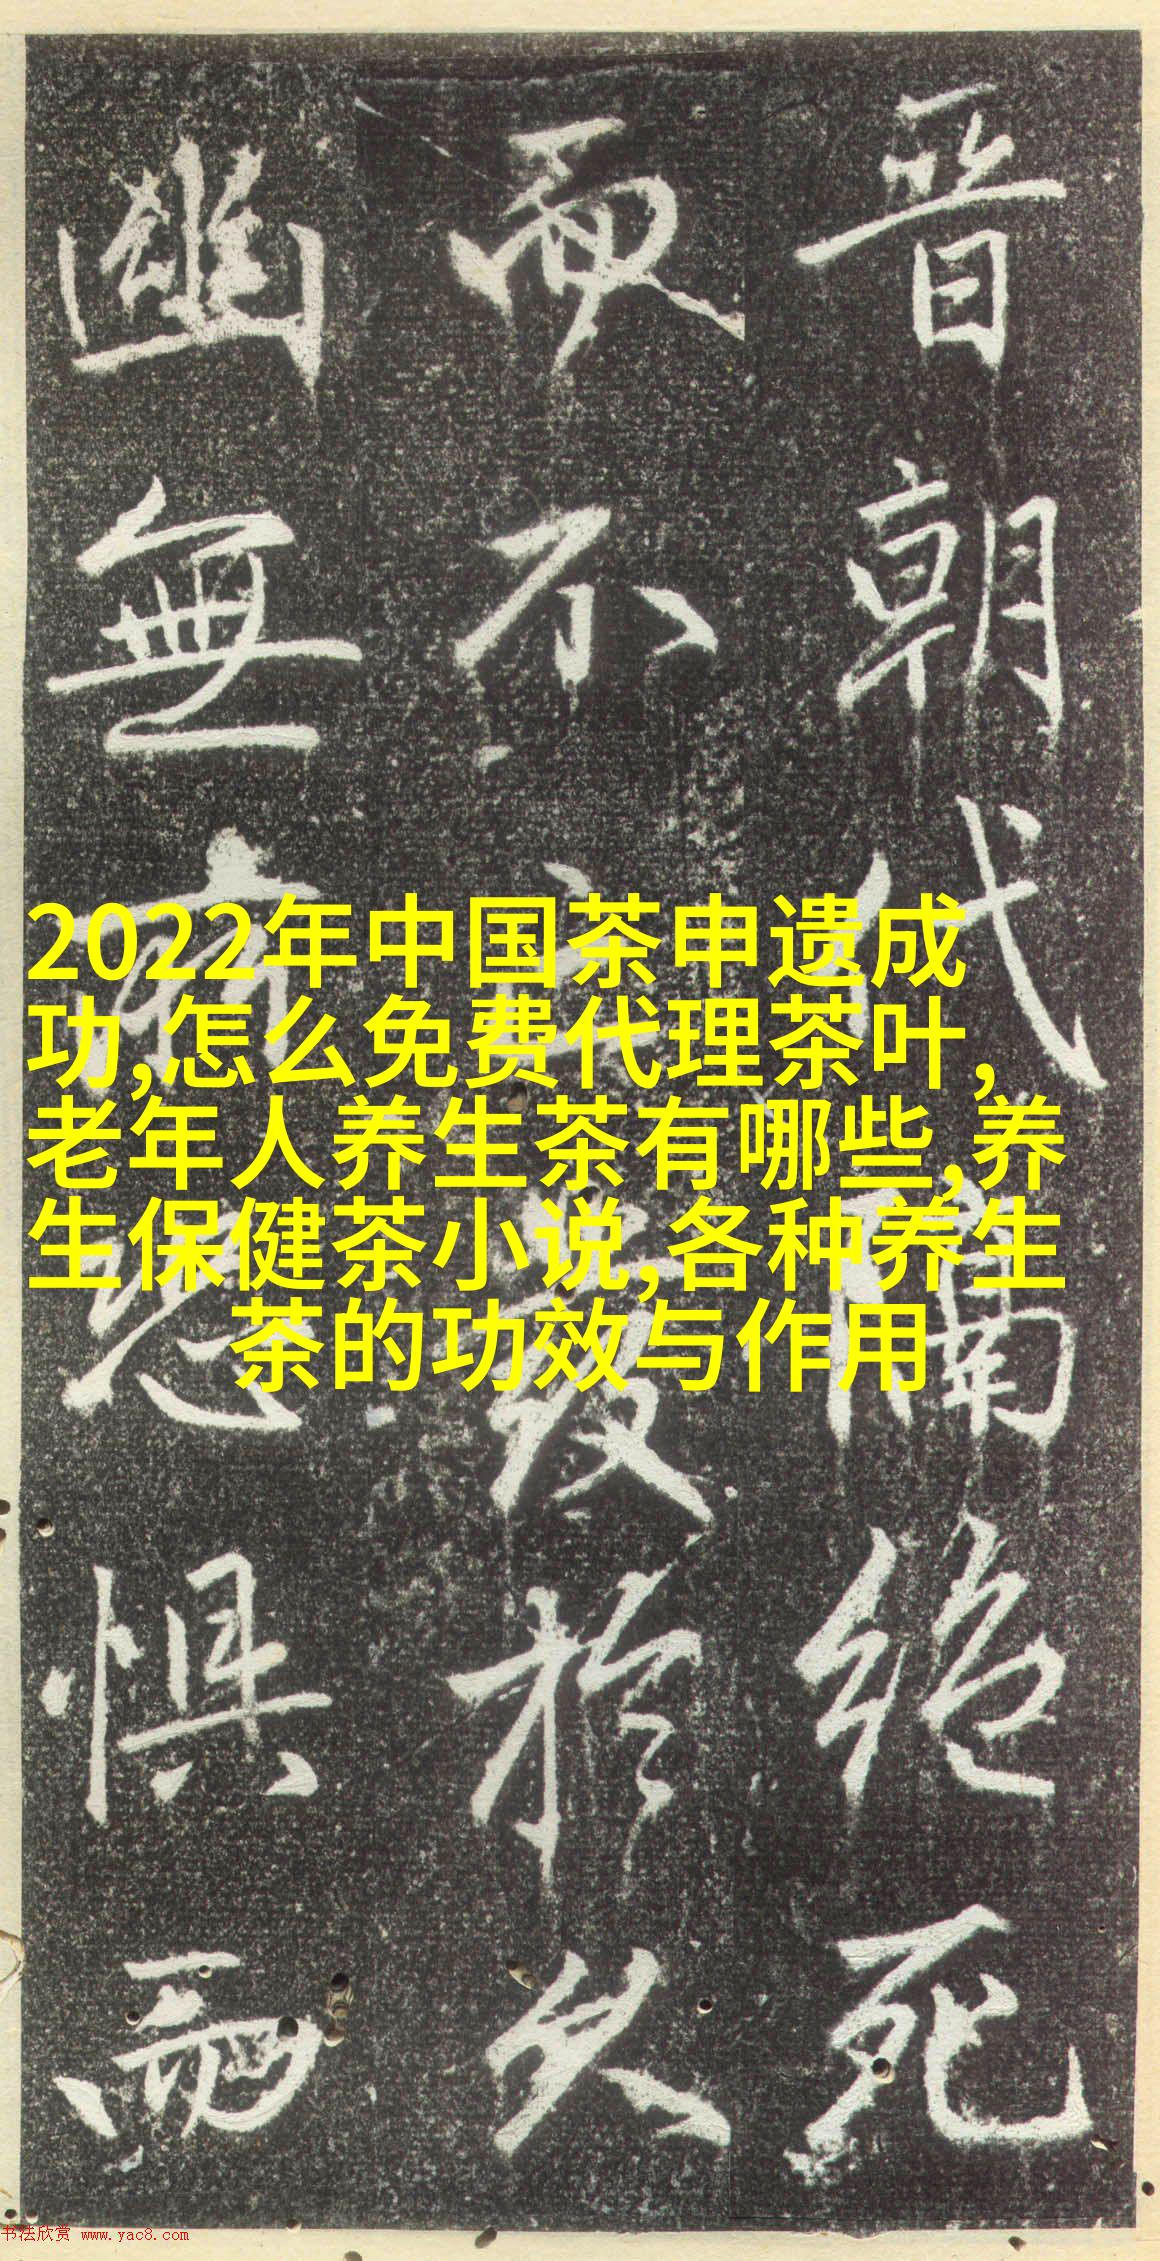 晋朝代隔絶死
而不於久
幽無惧
2022年中国茶申遗成
功,怎么免费代理茶叶,
老年人养生茶有哪些,养
生保健茶小说,各种养生
茶的功效与作用
书法欣赏 www.yac8.com